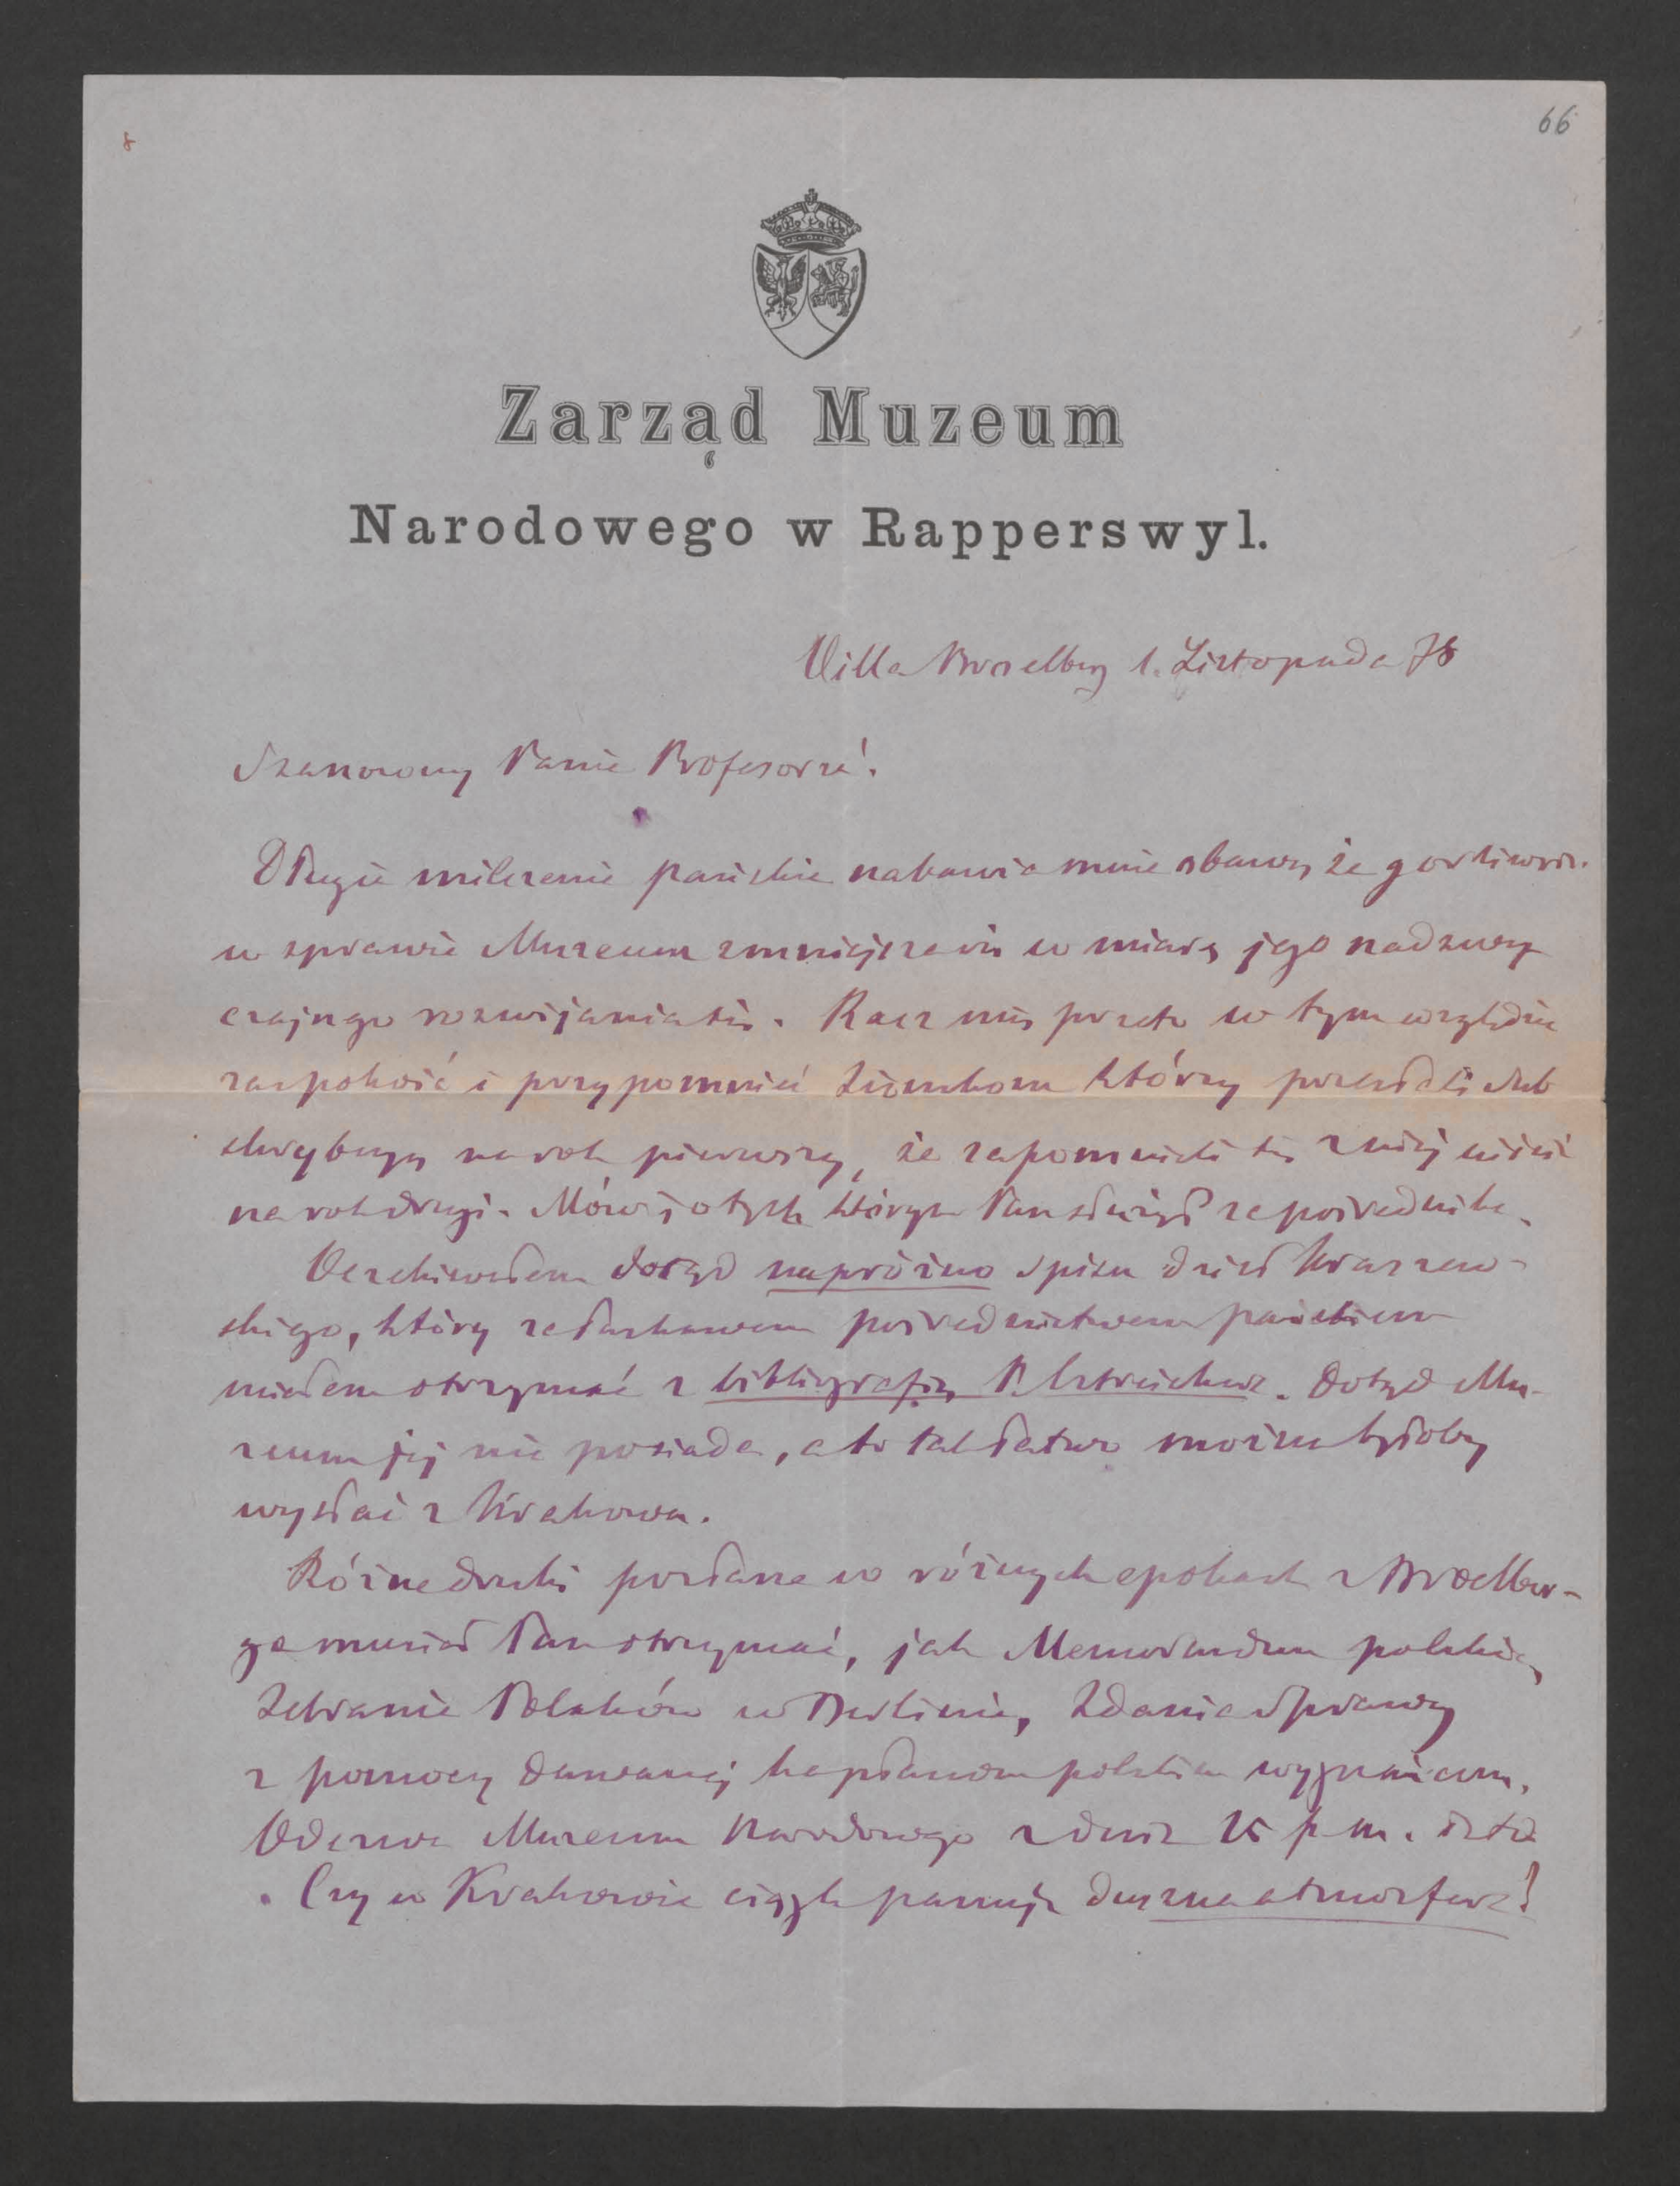 66
8
Zarząd Muzeum
Narodowego w Rapperswyl.
Villa Broelberg 1. Listopada 78
Szanowny Panie Profesorze!
Długie milczenie pańskie nabawia mnie obawy że gorliwość
w sprawie Muzeum zmniejsza się w miarę jego nadzwy
czajnego rozwijania się. Racz mię przeto w tym względzie
zaspokoić i przypomnieć Ziomkom którzy przesłali
na rok pierwszy, że zapomnieli się z niej uiścić
na rok drugi. Mówię o tych którym Pan służył za pośrednika.
Oczekiwałem dotąd napróżno spisu dzieł Kraszew-
skiego, który za łaskawem pośrednictwem pańskiem
miałem otrzymać z bibliografią P. Estreichera. Dotąd Mu-
zeum jej nie posiada, a to tak łatwo można byłoby
wysłać z Krakowa.
Różne druki posłane w różnych epokach z Broelber-
ga musiał Pan otrzymać, jak Memorandum polskie,
Zebranie Polaków w Berlinie, Zdanie Sprawy
z pomocy dawanej kapłanom polskim wygnańcom,
Odezwa Muzeum Narodowego z dnia 15 p. m.
Czy w Krakowie ciągle panuje duszna atmosfera?